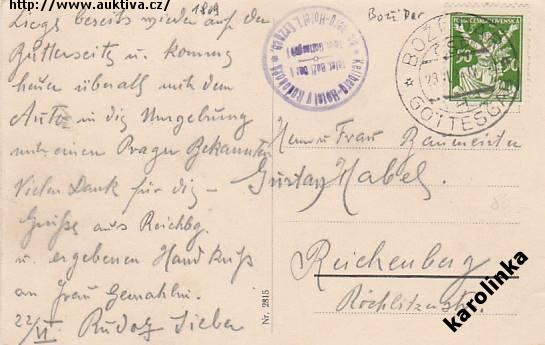 http://www.auktiva.cz/
1809
Boží Dar
Liege bereits wieder auf der
Butterseite u. komme
heuer überall mit dem
Auto in die Umgebung
mit einem Prager Bekannten
Vielen Dank für die
Grüße aus Reichbg.
u. ergebenen Handkuß
an Frau Gemahlin.
22/VI. Rudolf Sieber
Keilberg-Hotel
Telef. Boží Dar 1
BOŽÍ
GOTTESG
ČESKOSLOVENSKÁ
50 50
Herrn u Frau Baumeister
Gustav Habel
Reichenberg
Röchlitzerstr.
Nr. 2815
karolinka